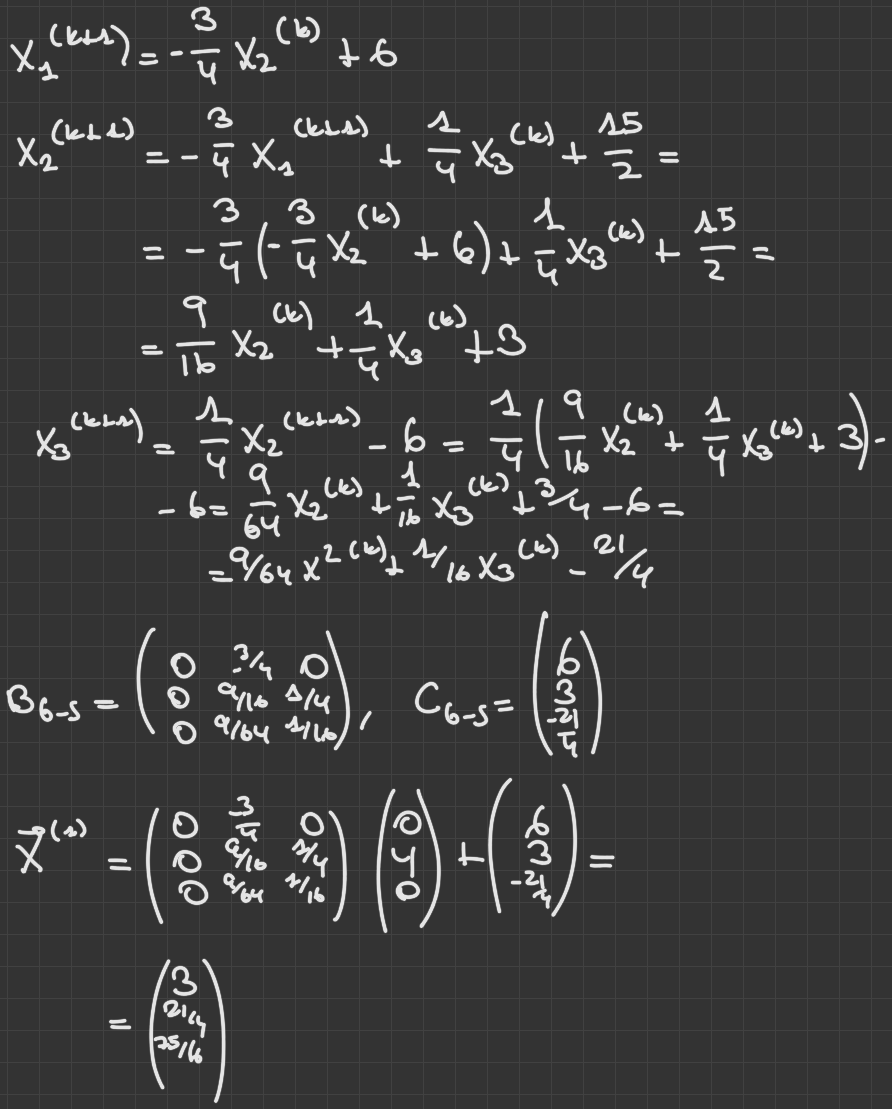 X₁^(k+1) = -3/4 X₂^(k) + 6
X₂^(k+1) = -3/4 X₁^(k+1) + 1/4 X₃^(k) + 15/2 =
= -3/4 (-3/4 X₂^(k) + 6) + 1/4 X₃^(k) + 15/2 =
= 9/16 X₂^(k) + 1/4 X₃^(k) + 3
X₃^(k+1) = 1/4 X₂^(k+1) - 6 = 1/4 (9/16 X₂^(k) + 1/4 X₃^(k) + 3) -
- 6 = 9/64 X₂^(k) + 1/16 X₃^(k) + 3/4 - 6 =
= 9/64 X^2^(k) + 1/16 X₃^(k) - 21/4
B_G-S = (0 -3/4 0; 0 9/16 1/4; 0 9/64 1/16), C_G-S = (6; 3; -21/4)
X⃗^(1) = (0 -3/4 0; 0 9/16 1/4; 0 9/64 1/16) (0; 4; 0) + (6; 3; -21/4) =
= (3; 21/4; 75/16)